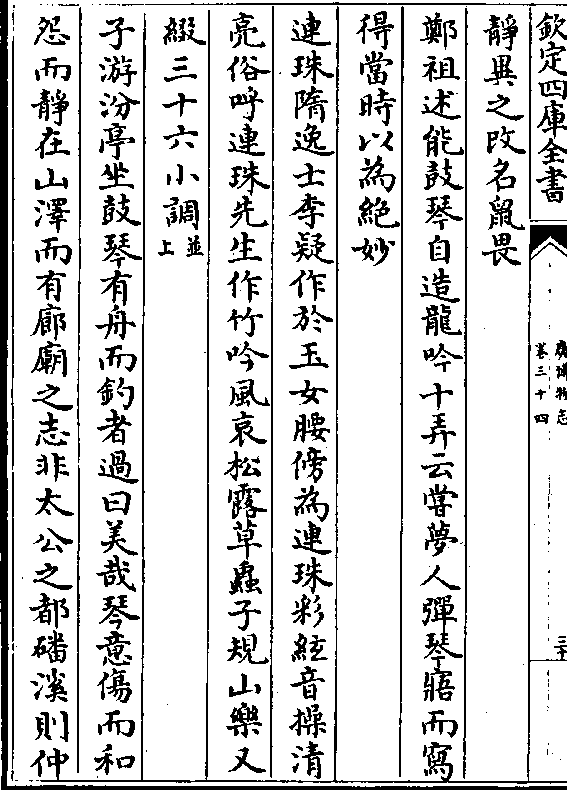 欽定四庫全書
廣博物志
卷三十四
靜異之改名鼠畏
鄭祖述能鼓琴自造龍吟十弄云嘗夢人彈琴寤而寫
得當時以為絶妙
連珠隋逸士李疑作於玉女腰傍為連珠彩絃音操清
亮俗呼連珠先生作竹吟風哀松露草蟲子規山樂又
綴三十六小調並上
子游汾亭坐鼓琴有舟而釣者過曰美哉琴意傷而和
怨而靜在山澤而有廊廟之志非太公之都磻溪則仲